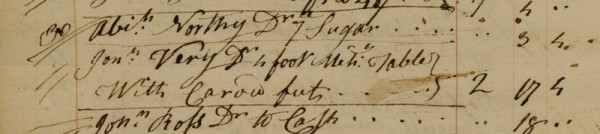 Abi.h Northy Dr 7 Sugar . . . . .. 3 4 ..
Jon.n Very Dr 4 foot Table
With feet . . . . . 2 17 4
Jon.n Ross Dr to Cash . . . . . .. 18 ..